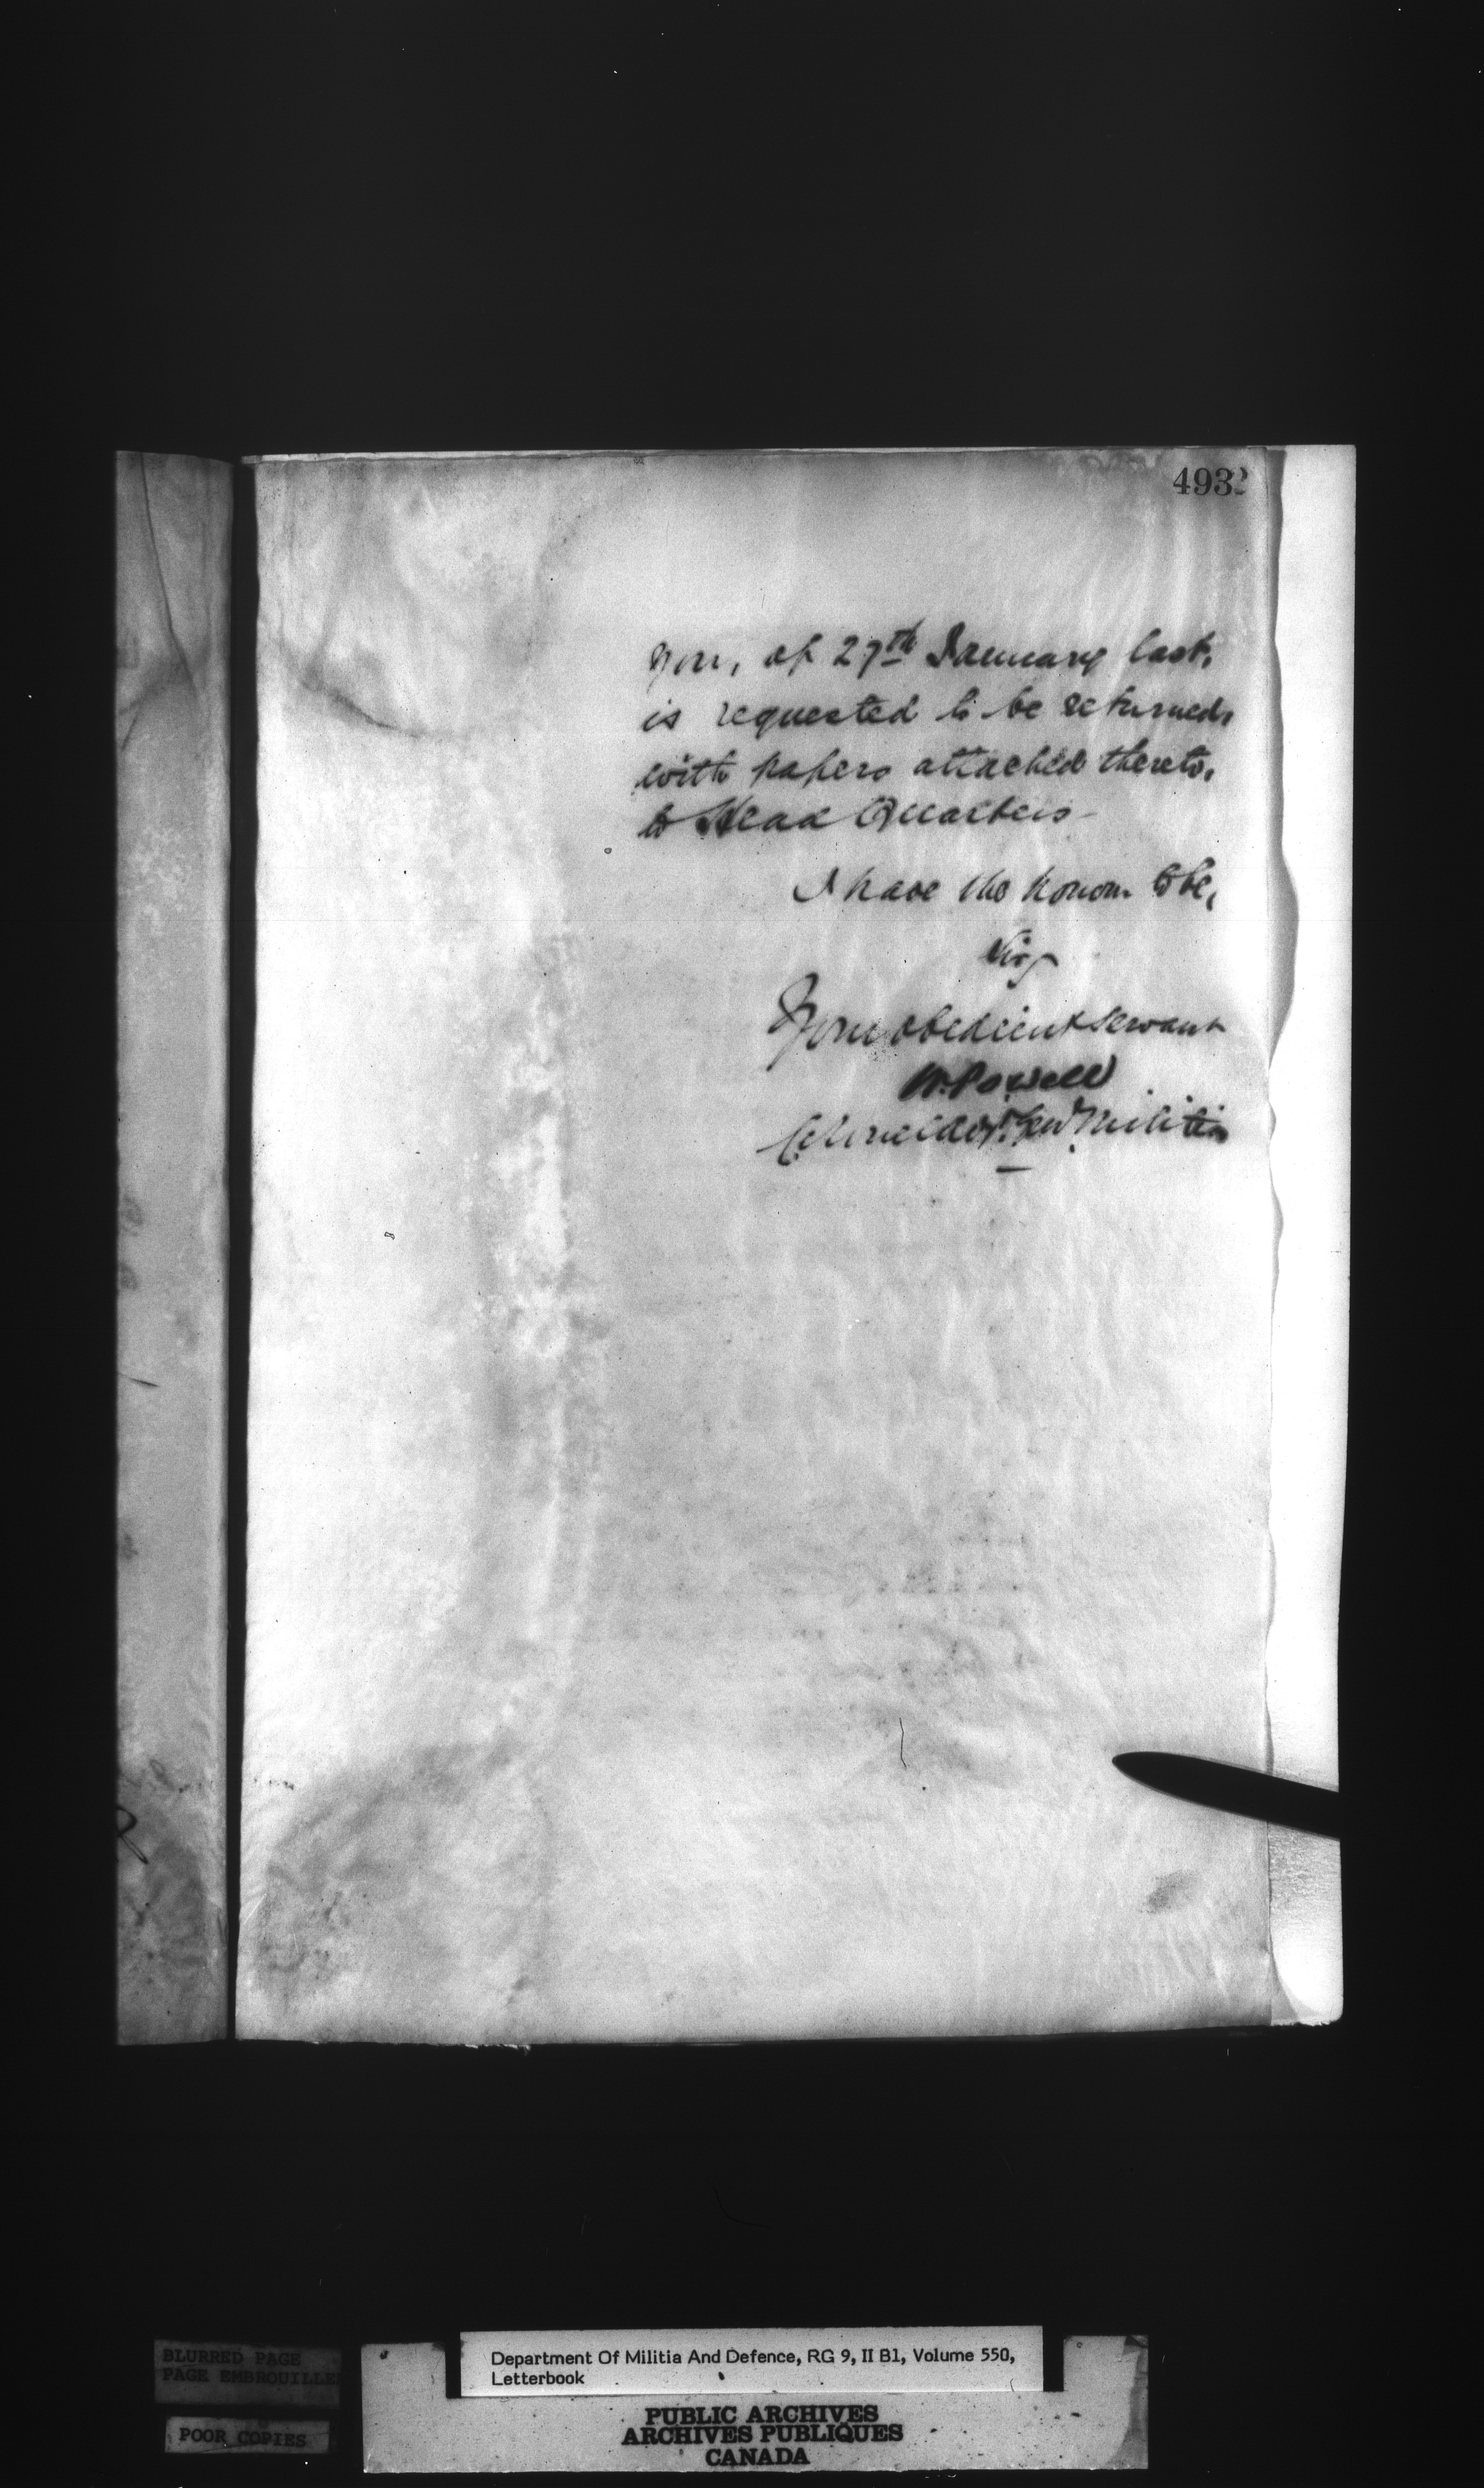 493
you, of 27th January last,
is requested to be returned,
with papers attached thereto,
to Head Quarters -
I have the honour to be,
Sir,
Your obedient servant
W. Powell
Colonel Adjt. Genl Militia
BLURRED PAGE
PAGE EMBROUILLE
POOR COPIES
Department Of Militia And Defence, RG 9, II B1, Volume 550,
Letterbook
PUBLIC ARCHIVES
ARCHIVES PUBLIQUES
CANADA